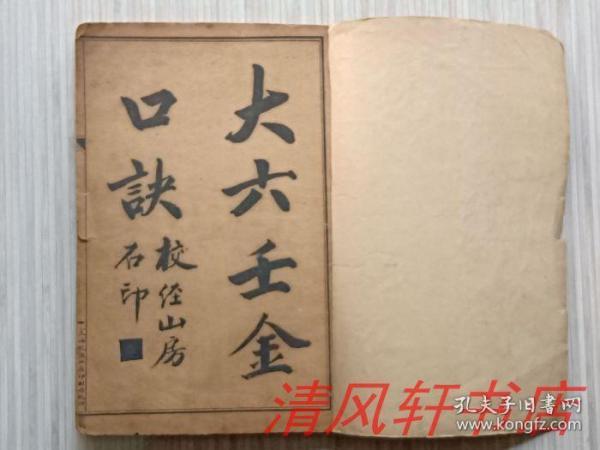 大六壬金
口訣
校经山房
石印
清风轩书店
孔夫子旧书网
www.kongfz.com